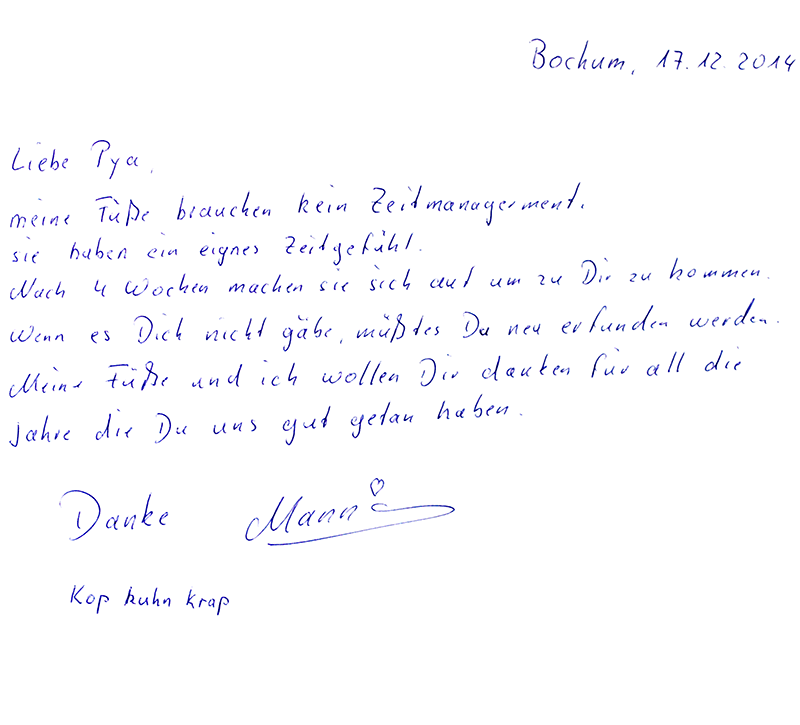 Bochum, 17.12.2014
Liebe Pya,
meine Füße brauchen kein Zeitmanagerment.
sie haben ein eignes Zeitgefühl.
Nach 4 Wochen machen sie sich auf um zu Dir zu kommen.
Wenn es Dich nicht gäbe, müßtes Du neu erfunden werden.
Meine Füße und ich wollen Dir danken für all die
Jahre die Du uns gut getan haben.
Danke Manni
Kop kuhn krap